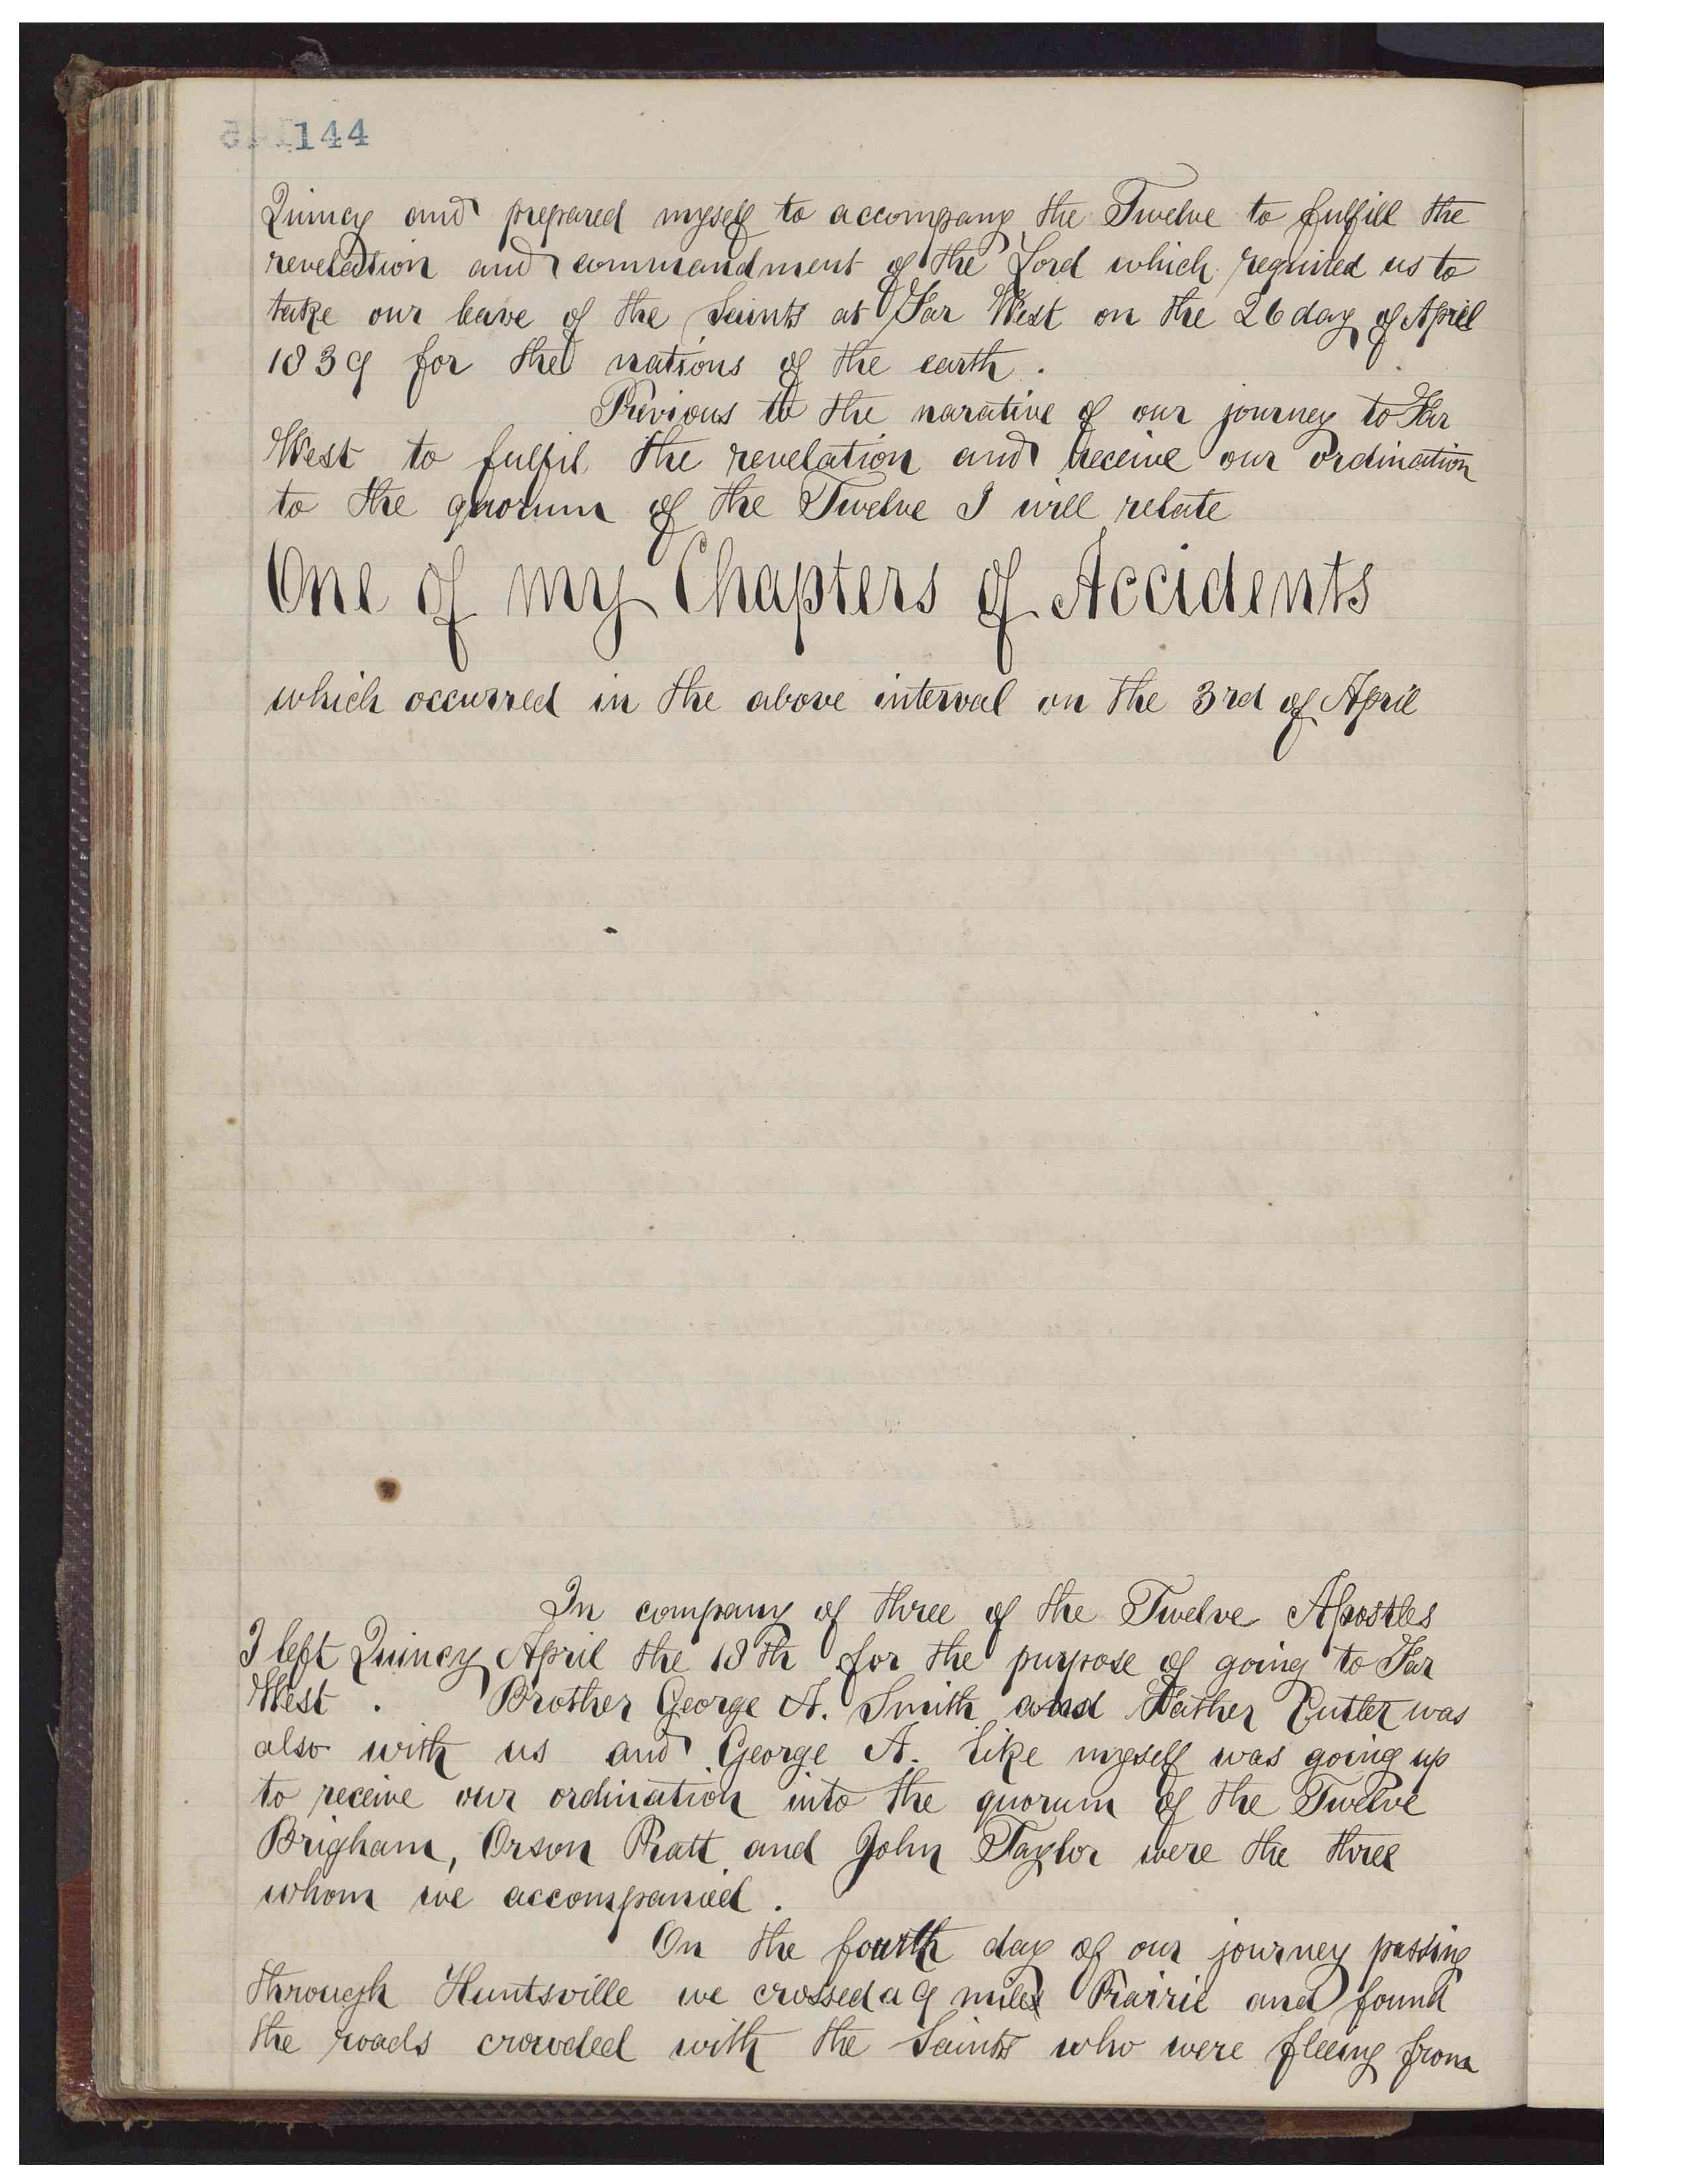 144
Quincy and prepared myself to accompany the Twelve to fulfill the
revelation and commandment of the Lord which required us to
take our leave of the Saints at Far West on the 26 day of April
1839 for the nations of the earth .
Previous to the narative of our journey to Far
West to fulfil the revelation and receive our ordination
to the quorum of the Twelve I will relate
One of my Chapters of Accidents
which occurred in the above interval on the 3rd of April
In company of three of the Twelve Apostles
I left Quincy April the 18th for the purpose of going to Far
West . Brother George A. Smith and Father Cutler was
also with us and George A. like myself was going up
to receive our ordination into the quorum of the Twelve
Brigham, Orson Pratt and John Taylor were the three
whom we accompanied .
On the fourth day of our journey passing
through Huntsville we crossed a 9 mile Prairie and found
the roads crowded with the Saints who were fleeing from